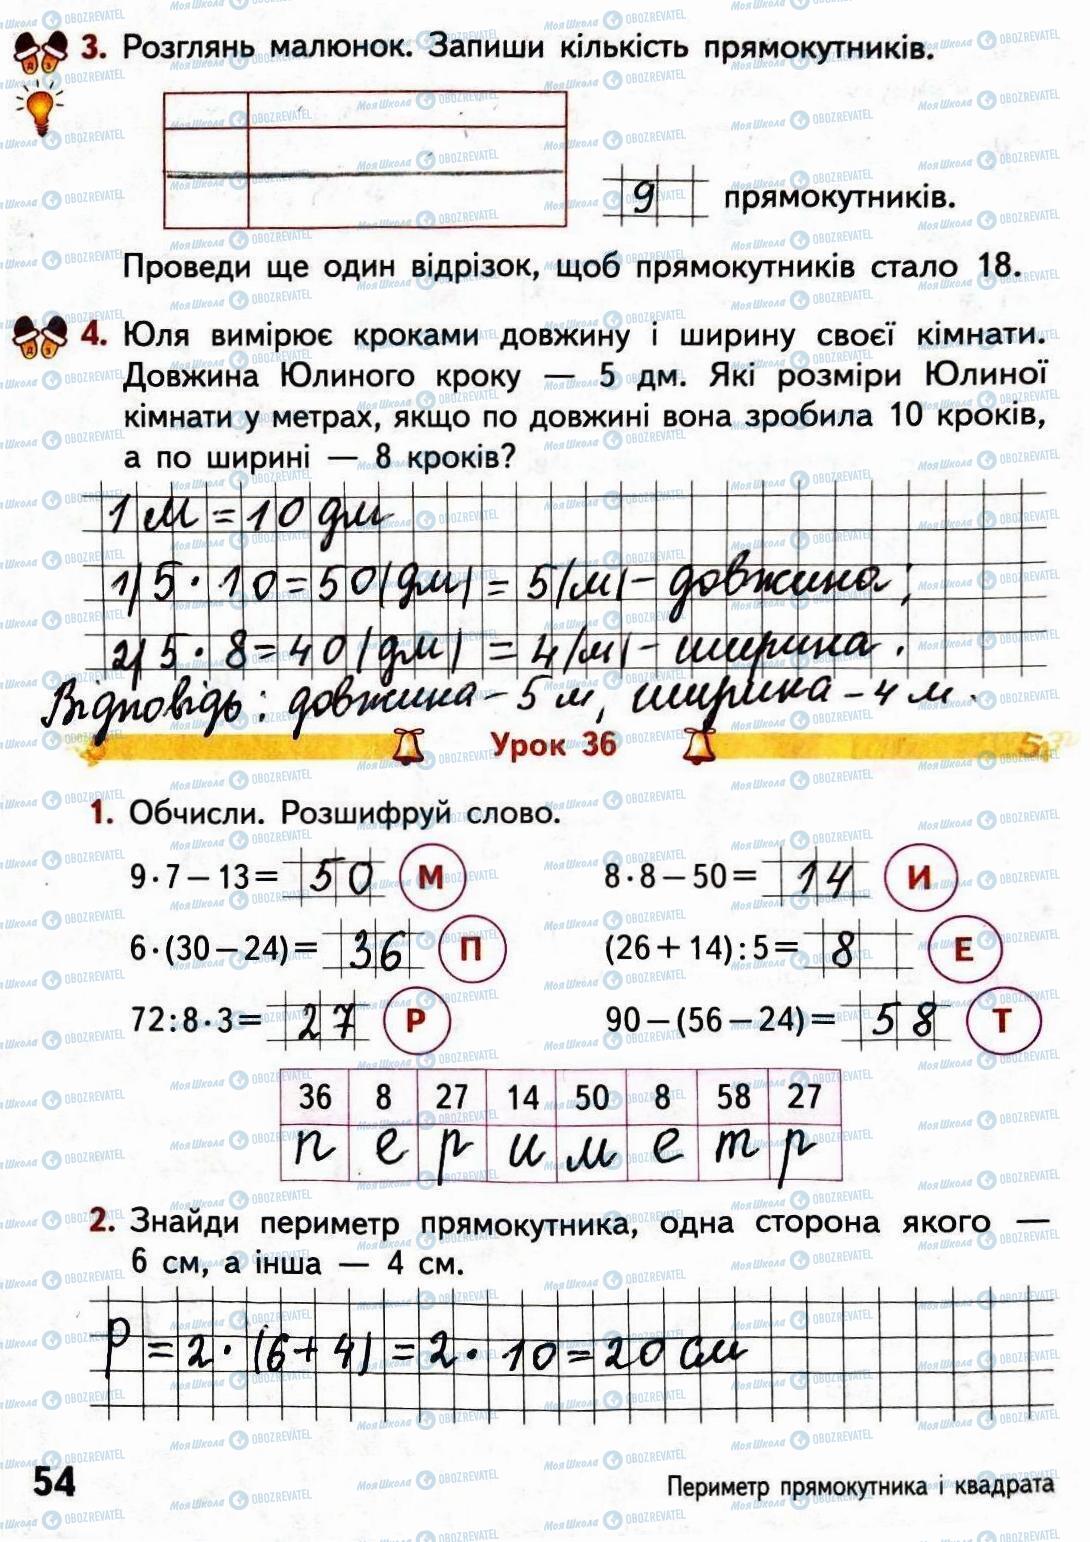 3. Розглянь малюнок. Запиши кількість прямокутників.
9 прямокутників.
Проведи ще один відрізок, щоб прямокутників стало 18.
4. Юля вимірює кроками довжину і ширину своєї кімнати.
Довжина Юлиного кроку — 5 дм. Які розміри Юлиної
кімнати у метрах, якщо по довжині вона зробила 10 кроків,
а по ширині — 8 кроків?
1 м = 10 дм
1) 5 · 10 = 50 (дм) = 5 (м) - довжина;
2) 5 · 8 = 40 (дм) = 4 (м) - ширина.
Відповідь: довжина - 5 м, ширина - 4 м.
Урок 36
1. Обчисли. Розшифруй слово.
9 · 7 – 13 = 50 М 8 · 8 – 50 = 14 И
6 · (30 – 24) = 36 П (26 + 14) : 5 = 8 Е
72 : 8 · 3 = 27 Р 90 – (56 – 24) = 58 Т
36 8 27 14 50 8 58 27
п е р и м е т р
2. Знайди периметр прямокутника, одна сторона якого —
6 см, а інша — 4 см.
P = 2 · (6 + 4) = 2 · 10 = 20 см
54 Периметр прямокутника і квадрата
МояШкола OBOZREVATEL